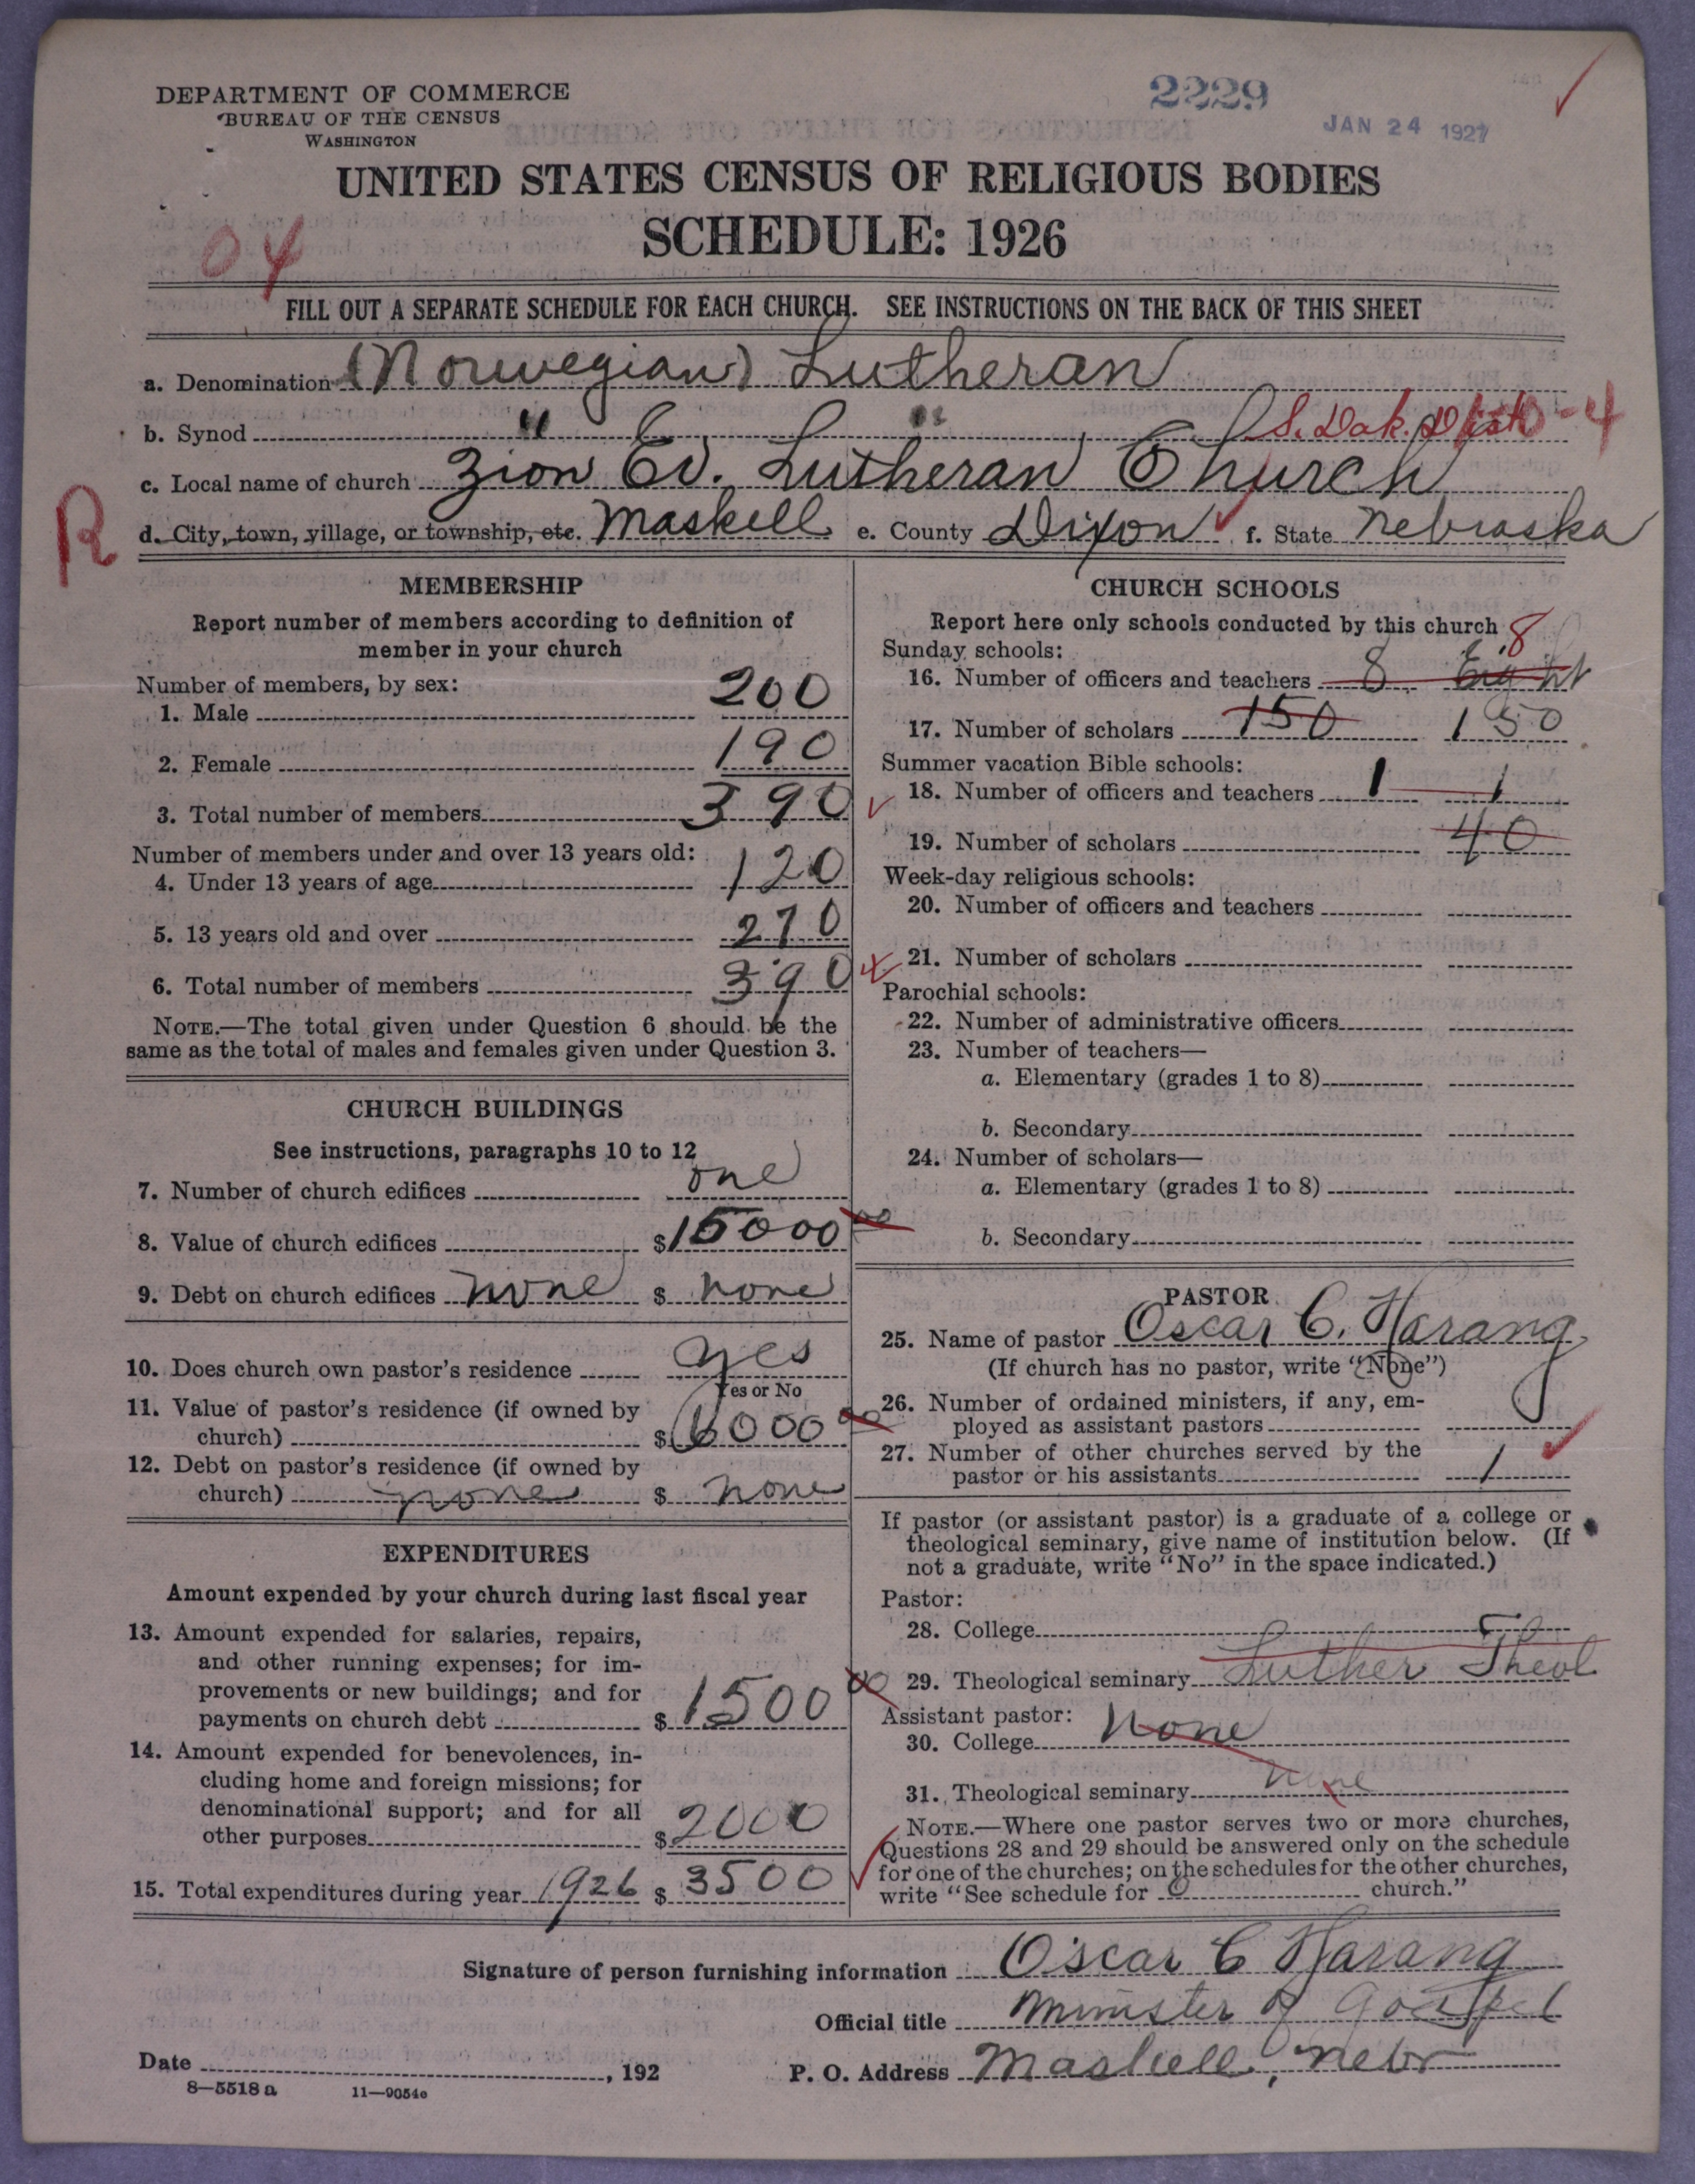 DEPARTMENT OF COMMERCE
BUREAU OF THE CENSUS
WASHINGTON
2229
JAN 24 1927
UNITED STATES CENSUS OF RELIGIOUS BODIES
SCHEDULE: 1926
04
FILL OUT A SEPARATE SCHEDULE FOR EACH CHURCH. SEE INSTRUCTIONS ON THE BACK OF THIS SHEET
a. Denomination (Norwegian) Lutheran
b. Synod " " S. Dak. Dist -4
c. Local name of church Zion Ev. Lutheran Church
R
d. City, town, village, or township, etc. Maskell e. County Dixon f. State Nebraska
MEMBERSHIP
Report number of members according to definition of
member in your church
Number of members, by sex:
1. Male 200
2. Female 190
3. Total number of members 390
Number of members under and over 13 years old:
4. Under 13 years of age 120
5. 13 years old and over 270
6. Total number of members 390
NOTE.—The total given under Question 6 should be the
same as the total of males and females given under Question 3.
CHURCH BUILDINGS
See instructions, paragraphs 10 to 12
7. Number of church edifices one
8. Value of church edifices $15000 00
9. Debt on church edifices none $ none
10. Does church own pastor's residence yes
Yes or No
11. Value of pastor's residence (if owned by
church) $6000 00
12. Debt on pastor's residence (if owned by
church) none $ none
EXPENDITURES
Amount expended by your church during last fiscal year
13. Amount expended for salaries, repairs,
and other running expenses; for im-
provements or new buildings; and for
payments on church debt $1500 00
14. Amount expended for benevolences, in-
cluding home and foreign missions; for
denominational support; and for all
other purposes $2000
15. Total expenditures during year 1926 $ 3500
CHURCH SCHOOLS
Report here only schools conducted by this church
Sunday schools: 8
16. Number of officers and teachers 8 Eight
17. Number of scholars 150 150
Summer vacation Bible schools:
18. Number of officers and teachers 1 1
19. Number of scholars 40
Week-day religious schools:
20. Number of officers and teachers
21. Number of scholars
Parochial schools:
22. Number of administrative officers
23. Number of teachers—
a. Elementary (grades 1 to 8)
b. Secondary
24. Number of scholars—
a. Elementary (grades 1 to 8)
b. Secondary
PASTOR
25. Name of pastor Oscar C. Harang
(If church has no pastor, write "None")
26. Number of ordained ministers, if any, em-
ployed as assistant pastors
27. Number of other churches served by the
pastor or his assistants 1
If pastor (or assistant pastor) is a graduate of a college or
theological seminary, give name of institution below. (If
not a graduate, write "No" in the space indicated.)
Pastor:
28. College
29. Theological seminary Luther Theol
Assistant pastor:
30. College None
31. Theological seminary None
NOTE.—Where one pastor serves two or more churches,
Questions 28 and 29 should be answered only on the schedule
for one of the churches; on the schedules for the other churches,
write "See schedule for church."
Signature of person furnishing information Oscar C Harang
Official title Minister of Gospel
Date , 192
P. O. Address Maskell, Nebr
8—5518 a 11—9054c